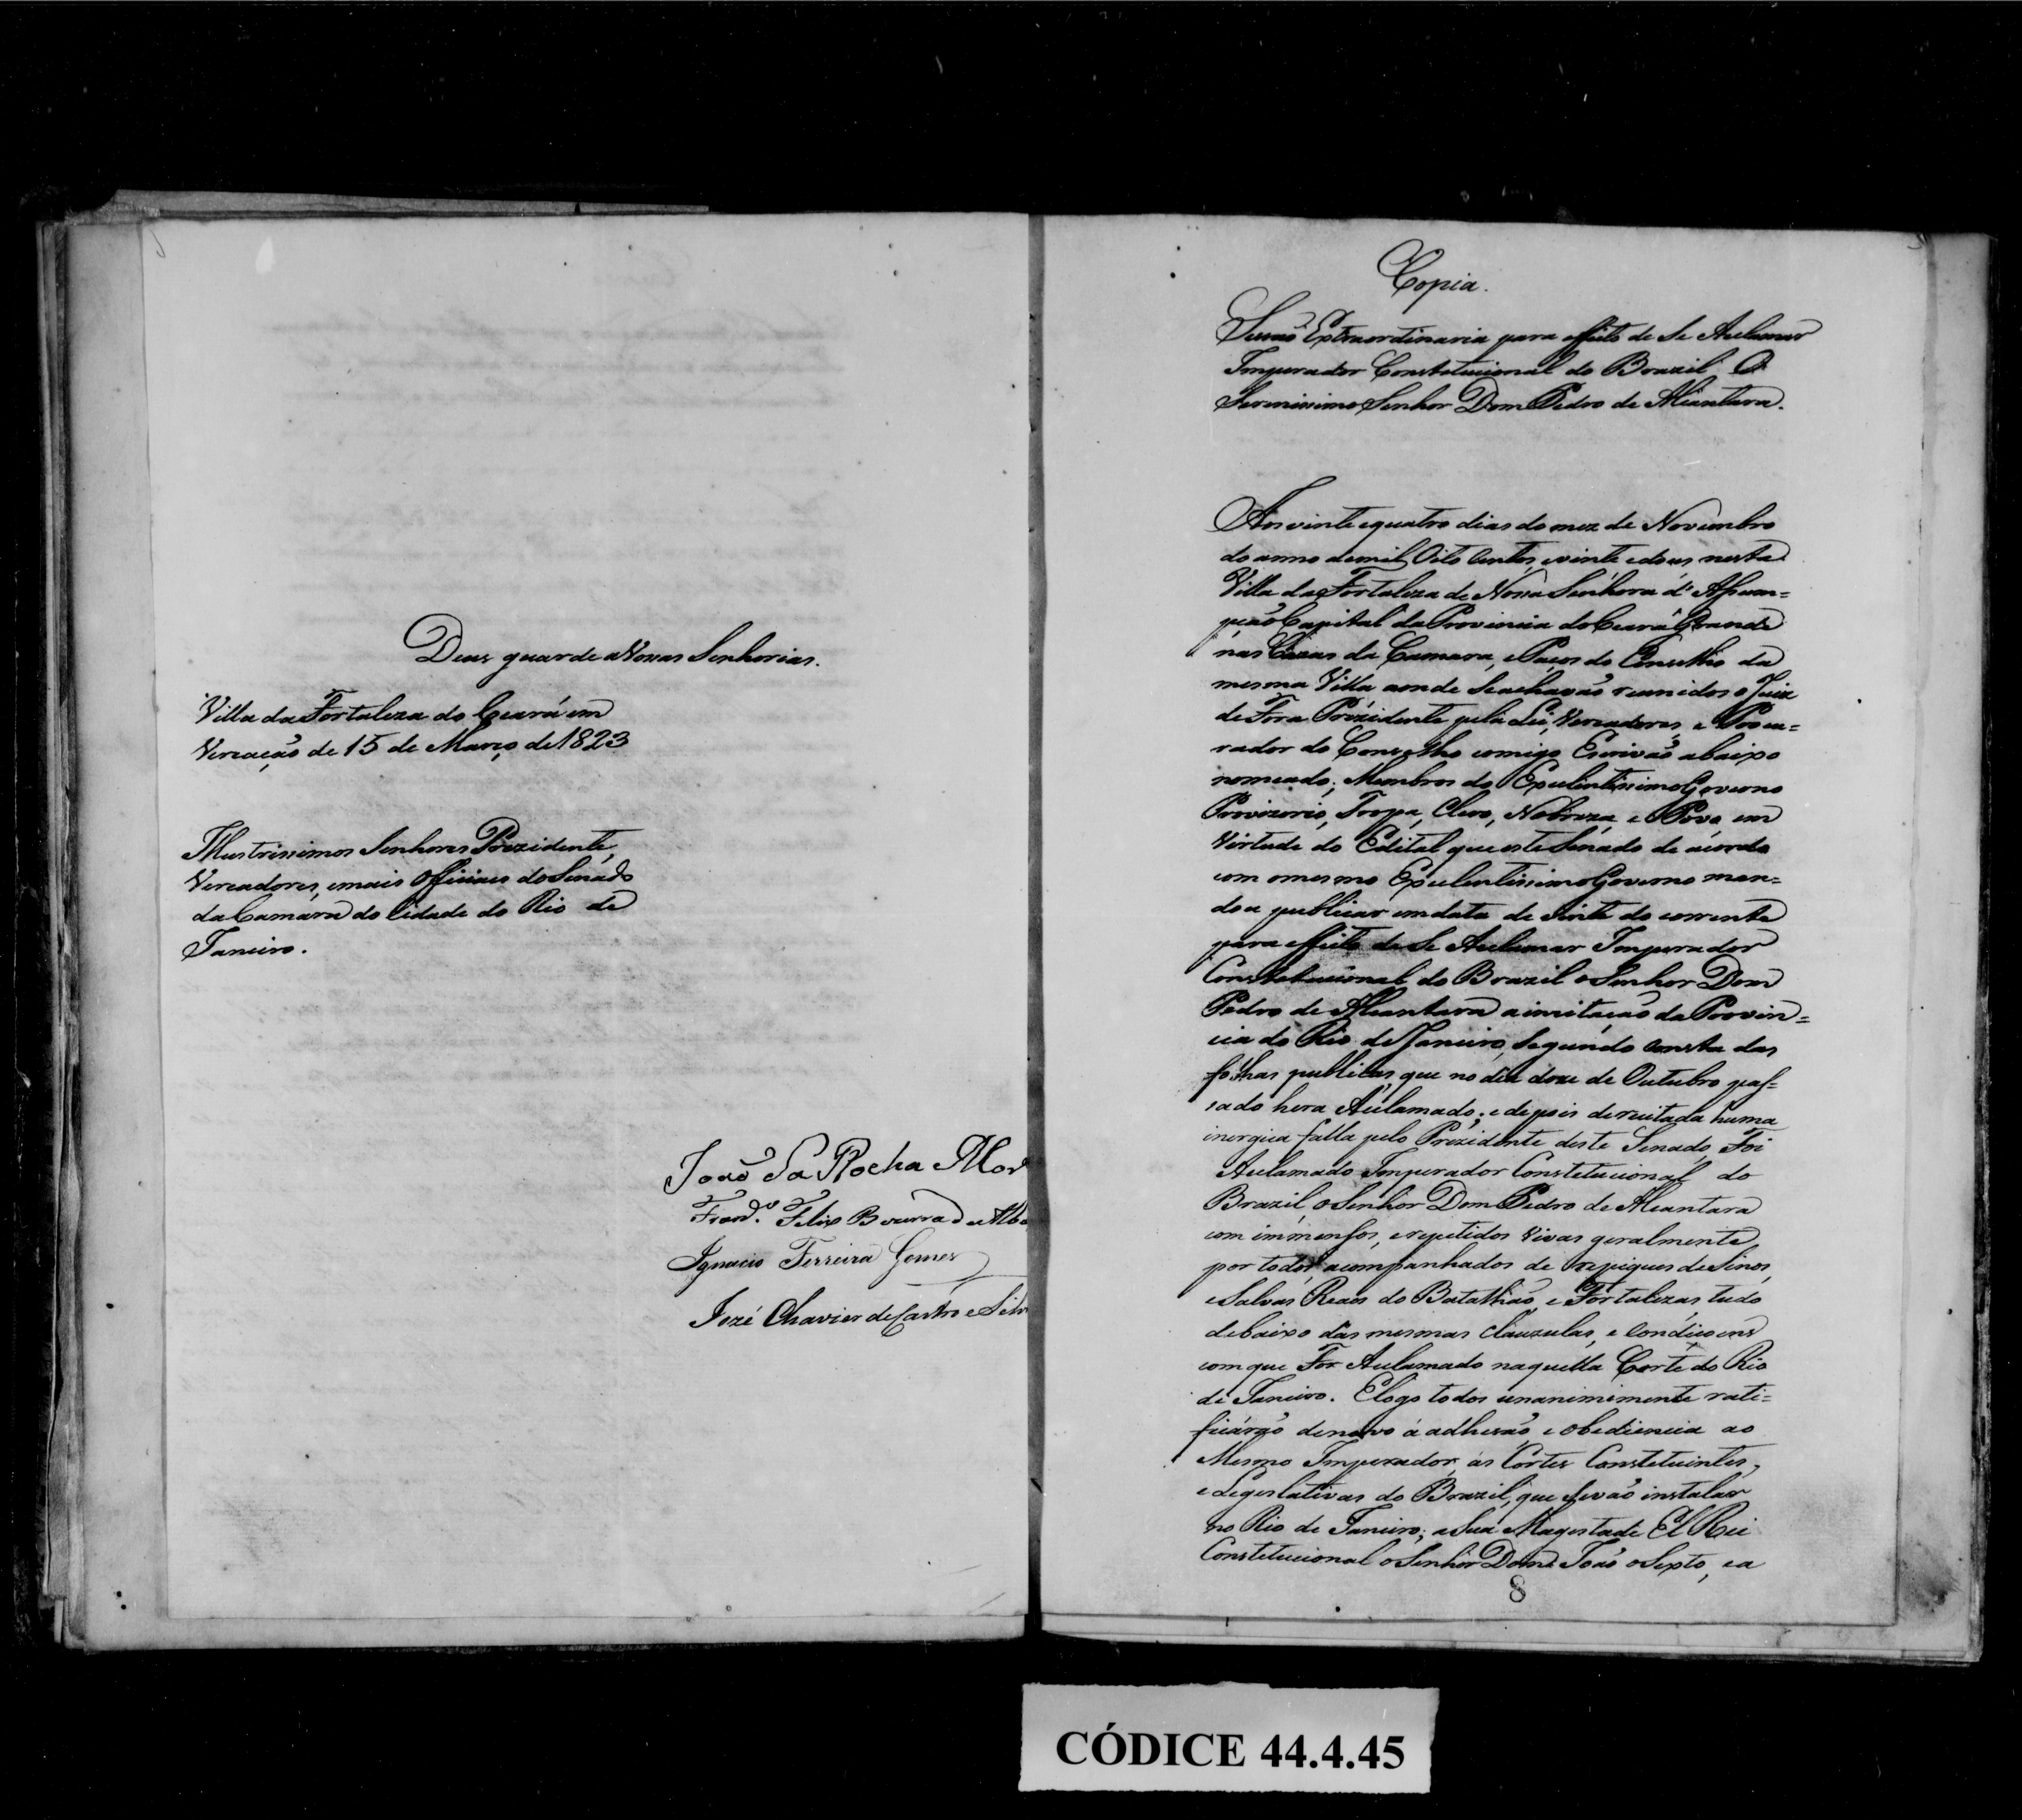 Deus guarde a Vossas Senhorias.
Villa da Fortaleza do Ceará em
Vereação de 15 de Março de 1823
Illustrissimos Senhores Prezidente,
Vereadores, e mais Officiaes do Senado
da Camara do Cidade do Rio de
Janeiro.
João da Rocha Mor
Franc.º Felix Bezerra de Alb
Ignacio Ferreira Gomes
Jozé Chavier de Castro e Silv
Copia.
Sessaõ Extraordinaria para effeito de Se Acclamar
Imperador Constetucional do Brazil O
Serenissimo Senhor Dom Pedro de Alcantara.
Aos vinte e quatro dias do mez de Novembro
do anno de mil Oito Centos e vinte e dous nesta
Villa da Fortaleza de Nossa Senhora d'Assum=
pçaõ Capital da Provincia do Ceará Grande
nas Cazas da Camara, e Paços do Conselho da
mesma Villa aonde Se achavaõ reunidos o Juiz
de Fora Prezidente pela Lei, Vereadores, e Procu=
rador do Conselho comigo Escrivaõ abaixo
nomeado; Membros do Excelentissimo Governo
Provizorio, Tropa, Clero, Nobreza, e Povo em
Virtude do Edital que este Senado de acordo
com o mesmo Excelentissimo Governo man=
dou publicar em data de vinte do corrente
para effeito de Se Acclamar Imperador
Constetucional do Brazil o Senhor Dom
Pedro de Alcantara a imitaçaõ da Provin=
cia do Rio de Janeiro, Segundo consta das
folhas publicas, que no dia doze de Outubro pas=
sado hera Acclamado; e depois de recitada huma
inergica falla pelo Prezidente deste Senado, Foi
Acclamado Imperador Constetucional do
Brazil, o Senhor Dom Pedro de Alcantara
com immensos, e repetidos Vivas geralmente
por todos acompanhados de repiques de Sinos,
e Salvas Reaes do Batalhaõ, e Fortalezas, tudo
debaixo das mesmas clauzulas, e Condicoens
com que For Acclamado naquella Corte do Rio
de Janeiro. E logo todos unanimimente rati=
ficáraõ denovo á adhesaõ, e obediencia ao
Mesmo Imperador, ás Cortes Constetuintes,
e Legeslativas do Brazil, que Se vaõ instalar
no Rio de Janeiro; a Sua Magestade El Rei
Constetucional o Senhor Dom Joaõ o Sexto, e a
8
CÓDICE 44.4.45